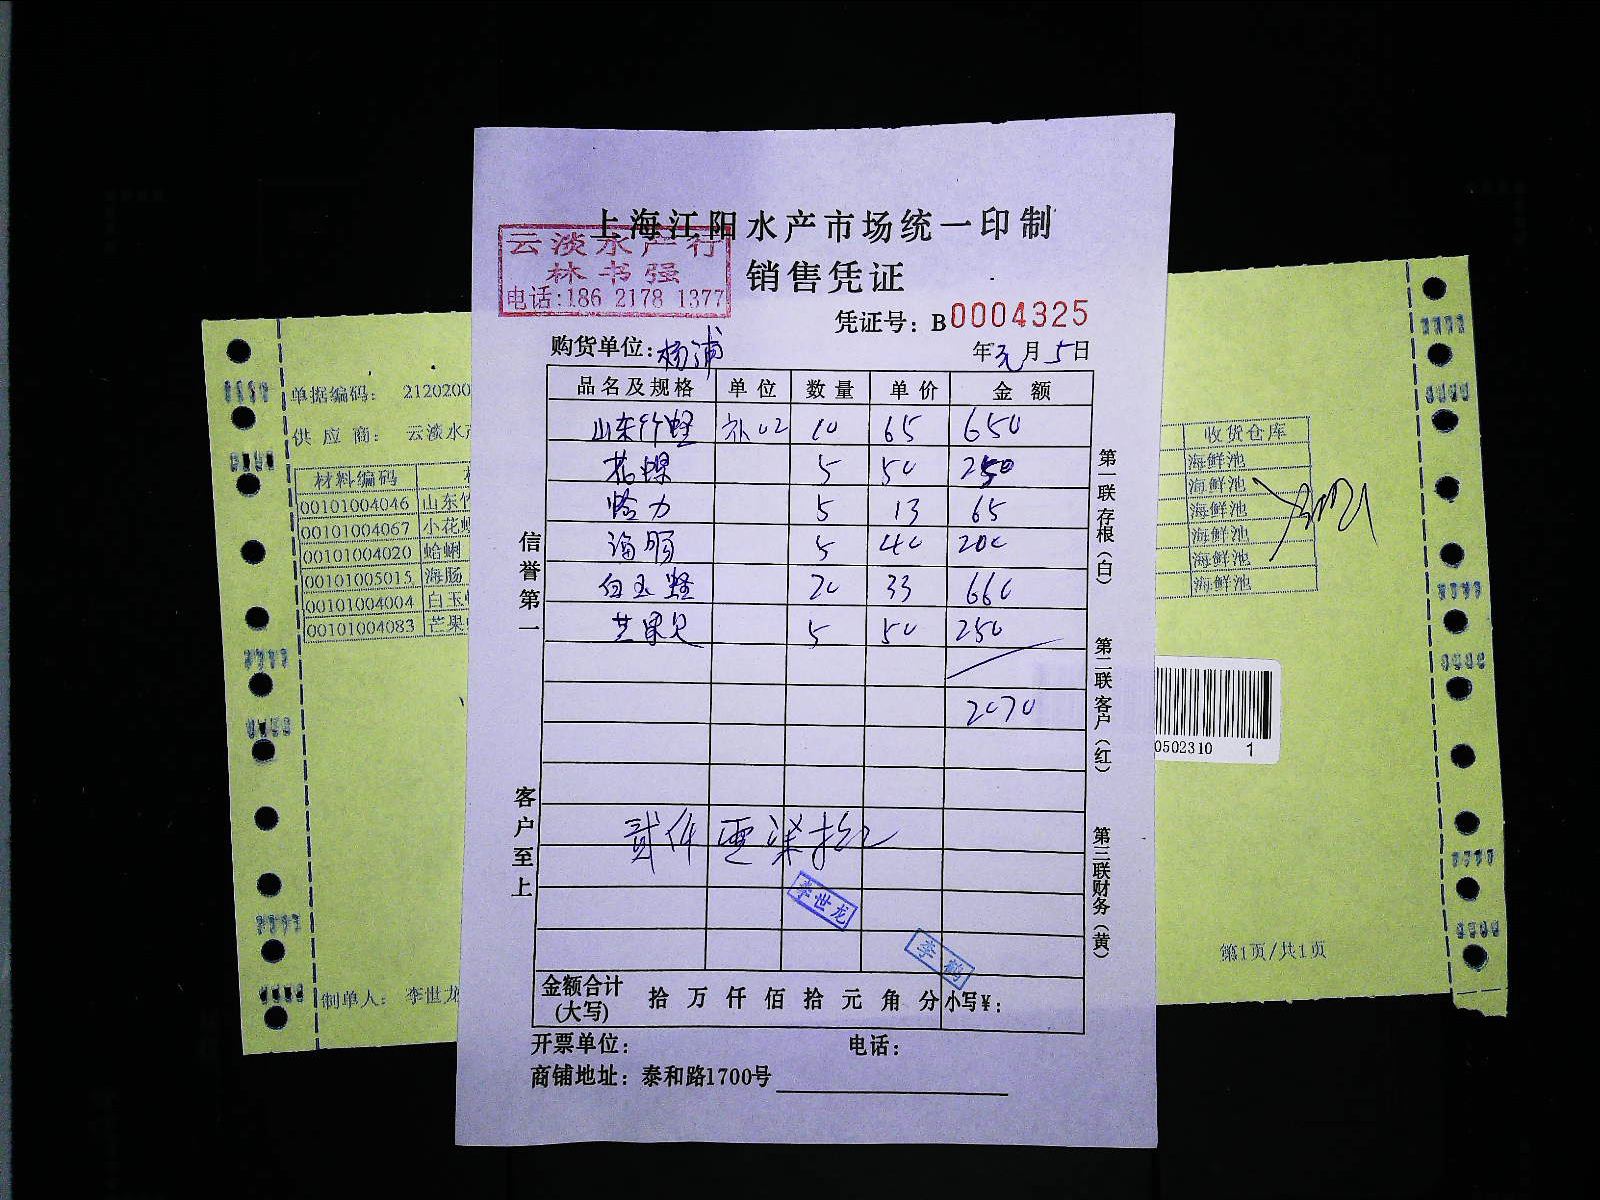 上海江阳水产市场统一印制
云淡水产行
林书强
电话:186 2178 1377
销售凭证
凭证号: B0004325
购货单位:杨浦
年元月5日
品名及规格 单位 数量 单价 金额
山东竹蛏 补02 10 65 650
花螺 5 50 250
蛤力 5 13 65
海肠 5 40 200
白玉蛏 20 33 660
芒果贝 5 50 250
2070
贰仟零柒拾元
李世龙
李鹤
金额合计
(大写)
拾万仟佰拾元角分 小写¥:
开票单位: 电话:
商铺地址: 泰和路1700号
信誉第一
客户至上
第一联存根(白)
第二联客户(红)
第三联财务(黄)
单据编码: 2120200
供应商: 云淡水产
材料编码
00101004046 山东竹
00101004067 小花螺
00101004020 蛤蜊
00101005015 海肠
00101004004 白玉蛏
00101004083 芒果
制单人: 李世龙
收货仓库
海鲜池
海鲜池
海鲜池
海鲜池
海鲜池
海鲜池
0502310 1
第1页/共1页